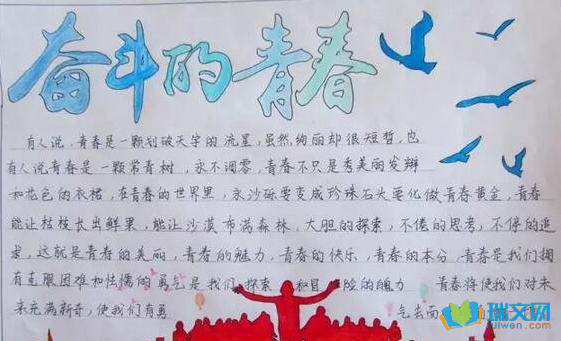 奋斗的青春
有人说,青春是一颗划破天宇的流星,虽然绚丽却很短暂,也
有人说青春是一颗常青树,永不凋零,青春不只是秀美丽发辫
和花色的衣裙,在青春的世界里,永沙砾要变成珍珠石头要化做青春黄金,青春
能让枯枝长出鲜果,能让沙漠布满森林,大胆的探索,不倦的思考,不停的追
求,这就是青春的美丽,青春的魅力,青春的快乐,青春的本分,青春是我们拥
有克服困难和怯懦的勇气是我们探索和冒险的魄力 青春将使我们对未
来充满新奇,使我们有勇 气去面
瑞文网
ruiwen.com